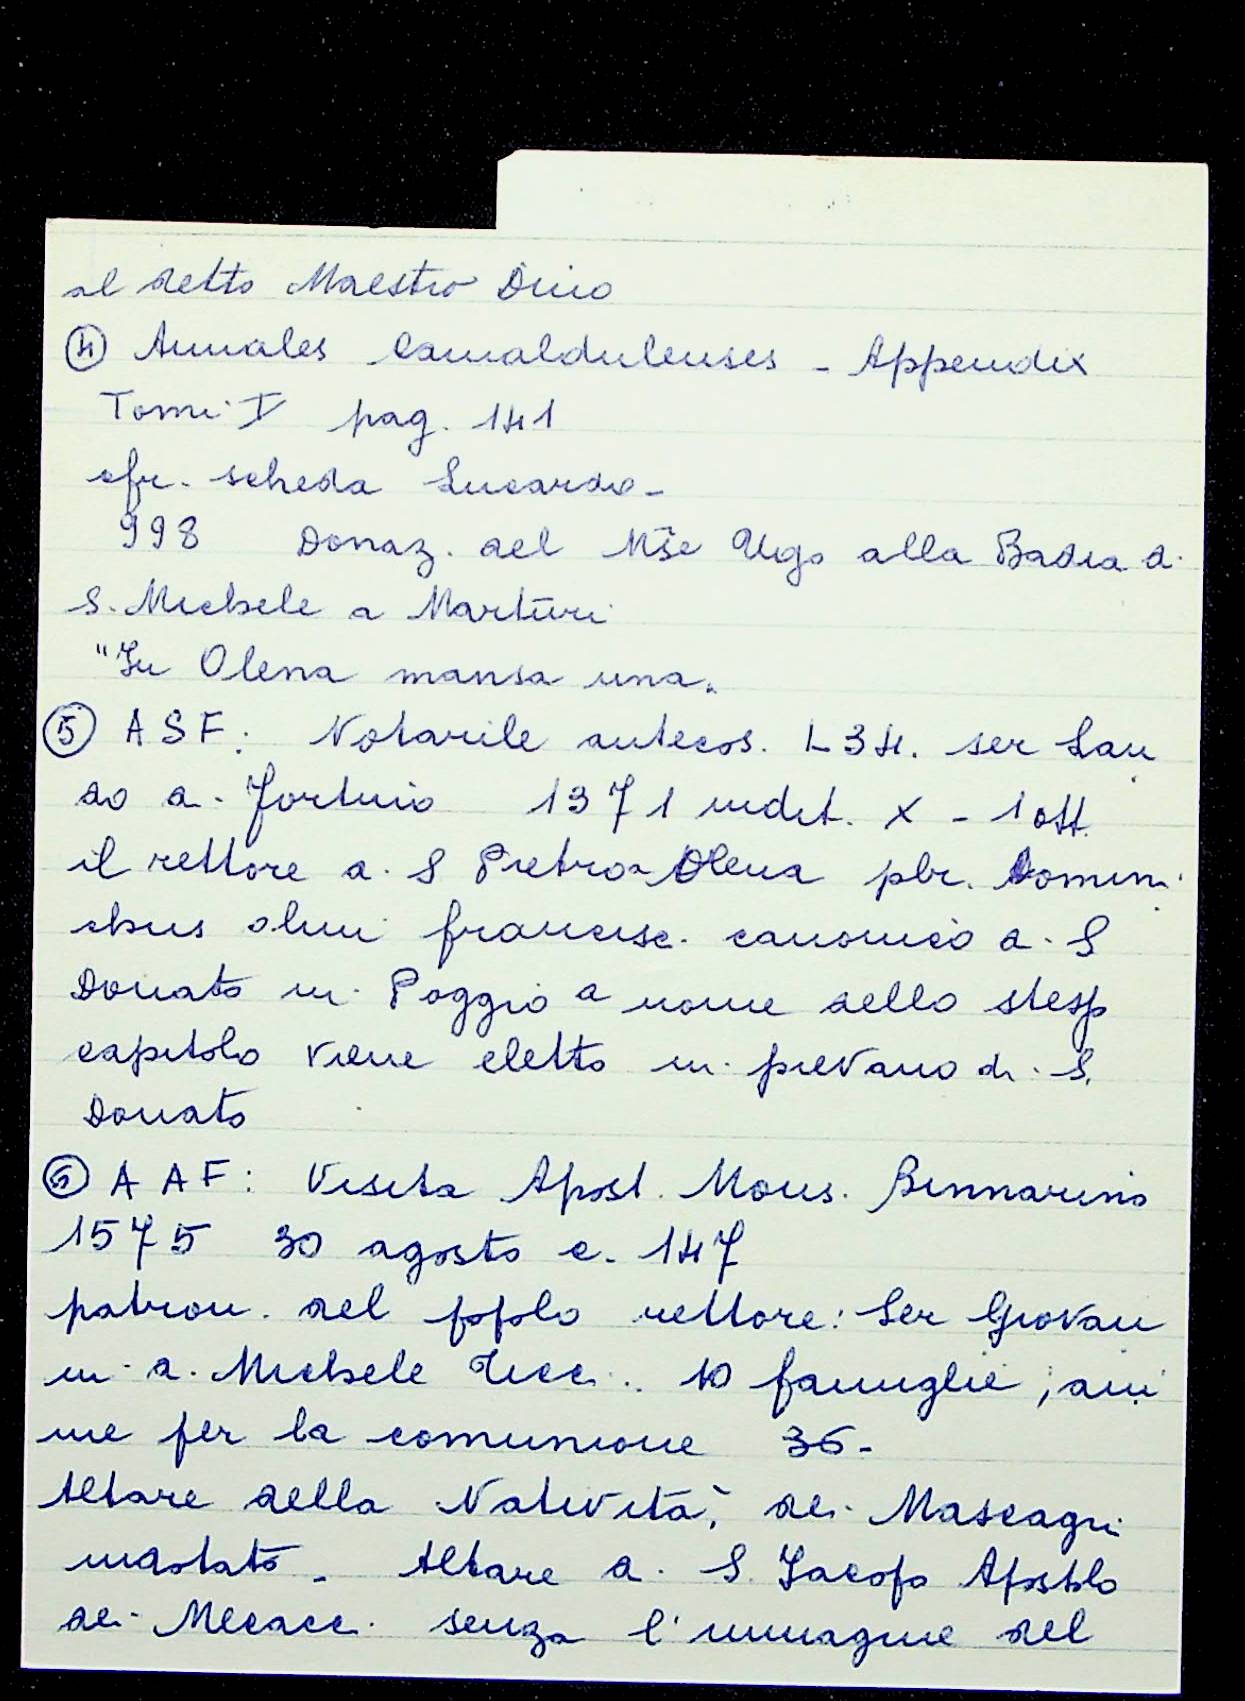 al detto Maestro Dino
④ Annales Camaldulenses - Appendix
Tomi V pag. 141
cfr. scheda Lucardo -
998 Donaz. del Mse Ugo alla Badia di
S. Michele a Marturi
"In Olena mansa una"
⑤ ASF: Notarile antecos. L 34. ser Lan
do di Fortuio 1371 indit. X - 1 ott.
il rettore di S Pietro a Olena pbr. Domini
chus olim francisc. canonico di S
Donato in Poggio a nome dello stesso
capitolo viene eletto in pievano di S.
Donato
⑥ AAF: Visita Apost. Mons. Binnarino
1575 30 agosto c. 147
patron. del popolo rettore: Ser Giovan
ni di Michele Ucci. 10 famiglie; ani
me per la comunione 36-
Altare della Natività, dei Mascagni
indotato - Altare di S. Jacopo Apostolo
dei Mecacci senza l'immagine del